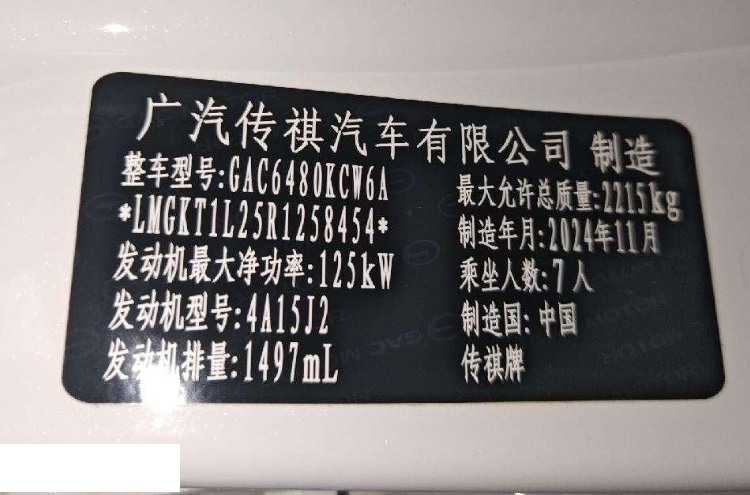 广汽传祺汽车有限公司 制造
整车型号:GAC6480KCW6A
*LMGKT1L25R1258454*
发动机最大净功率:125kW
发动机型号:4A15J2
发动机排量:1497mL
最大允许总质量:2215kg
制造年月:2024年11月
乘坐人数:7人
制造国:中国
传祺牌